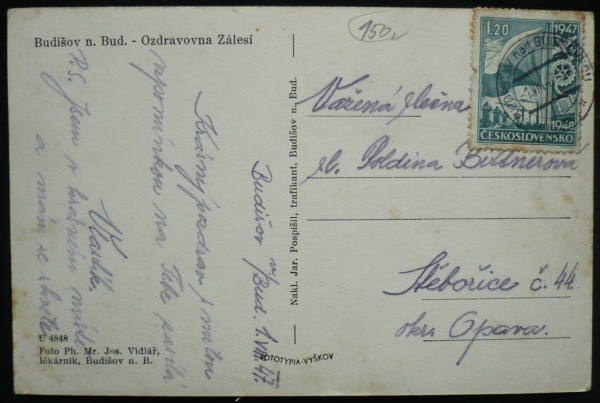 Budišov n. Bud. - Ozdravovna Zálesí
150,-
1.20
1947
1948
ČESKOSLOVENSKO
Budišov n/Bud. 1.VIII.47.
Krásný pozdrav s milou
vzpomínkou na Tebe posílá
Vladk.
P.S. Jsem v krásném
a mám se
Vážená slečna
sl. Poldina Bittnerová
Stěbořice č. 44
okr. Opava.
Nakl. Jar. Pospíšil, trafikant, Budišov n. Bud.
FOTOTYPIA-VYŠKOV
U 4848
Foto Ph. Mr. Jos. Vidlář,
lékárník, Budišov n. B.